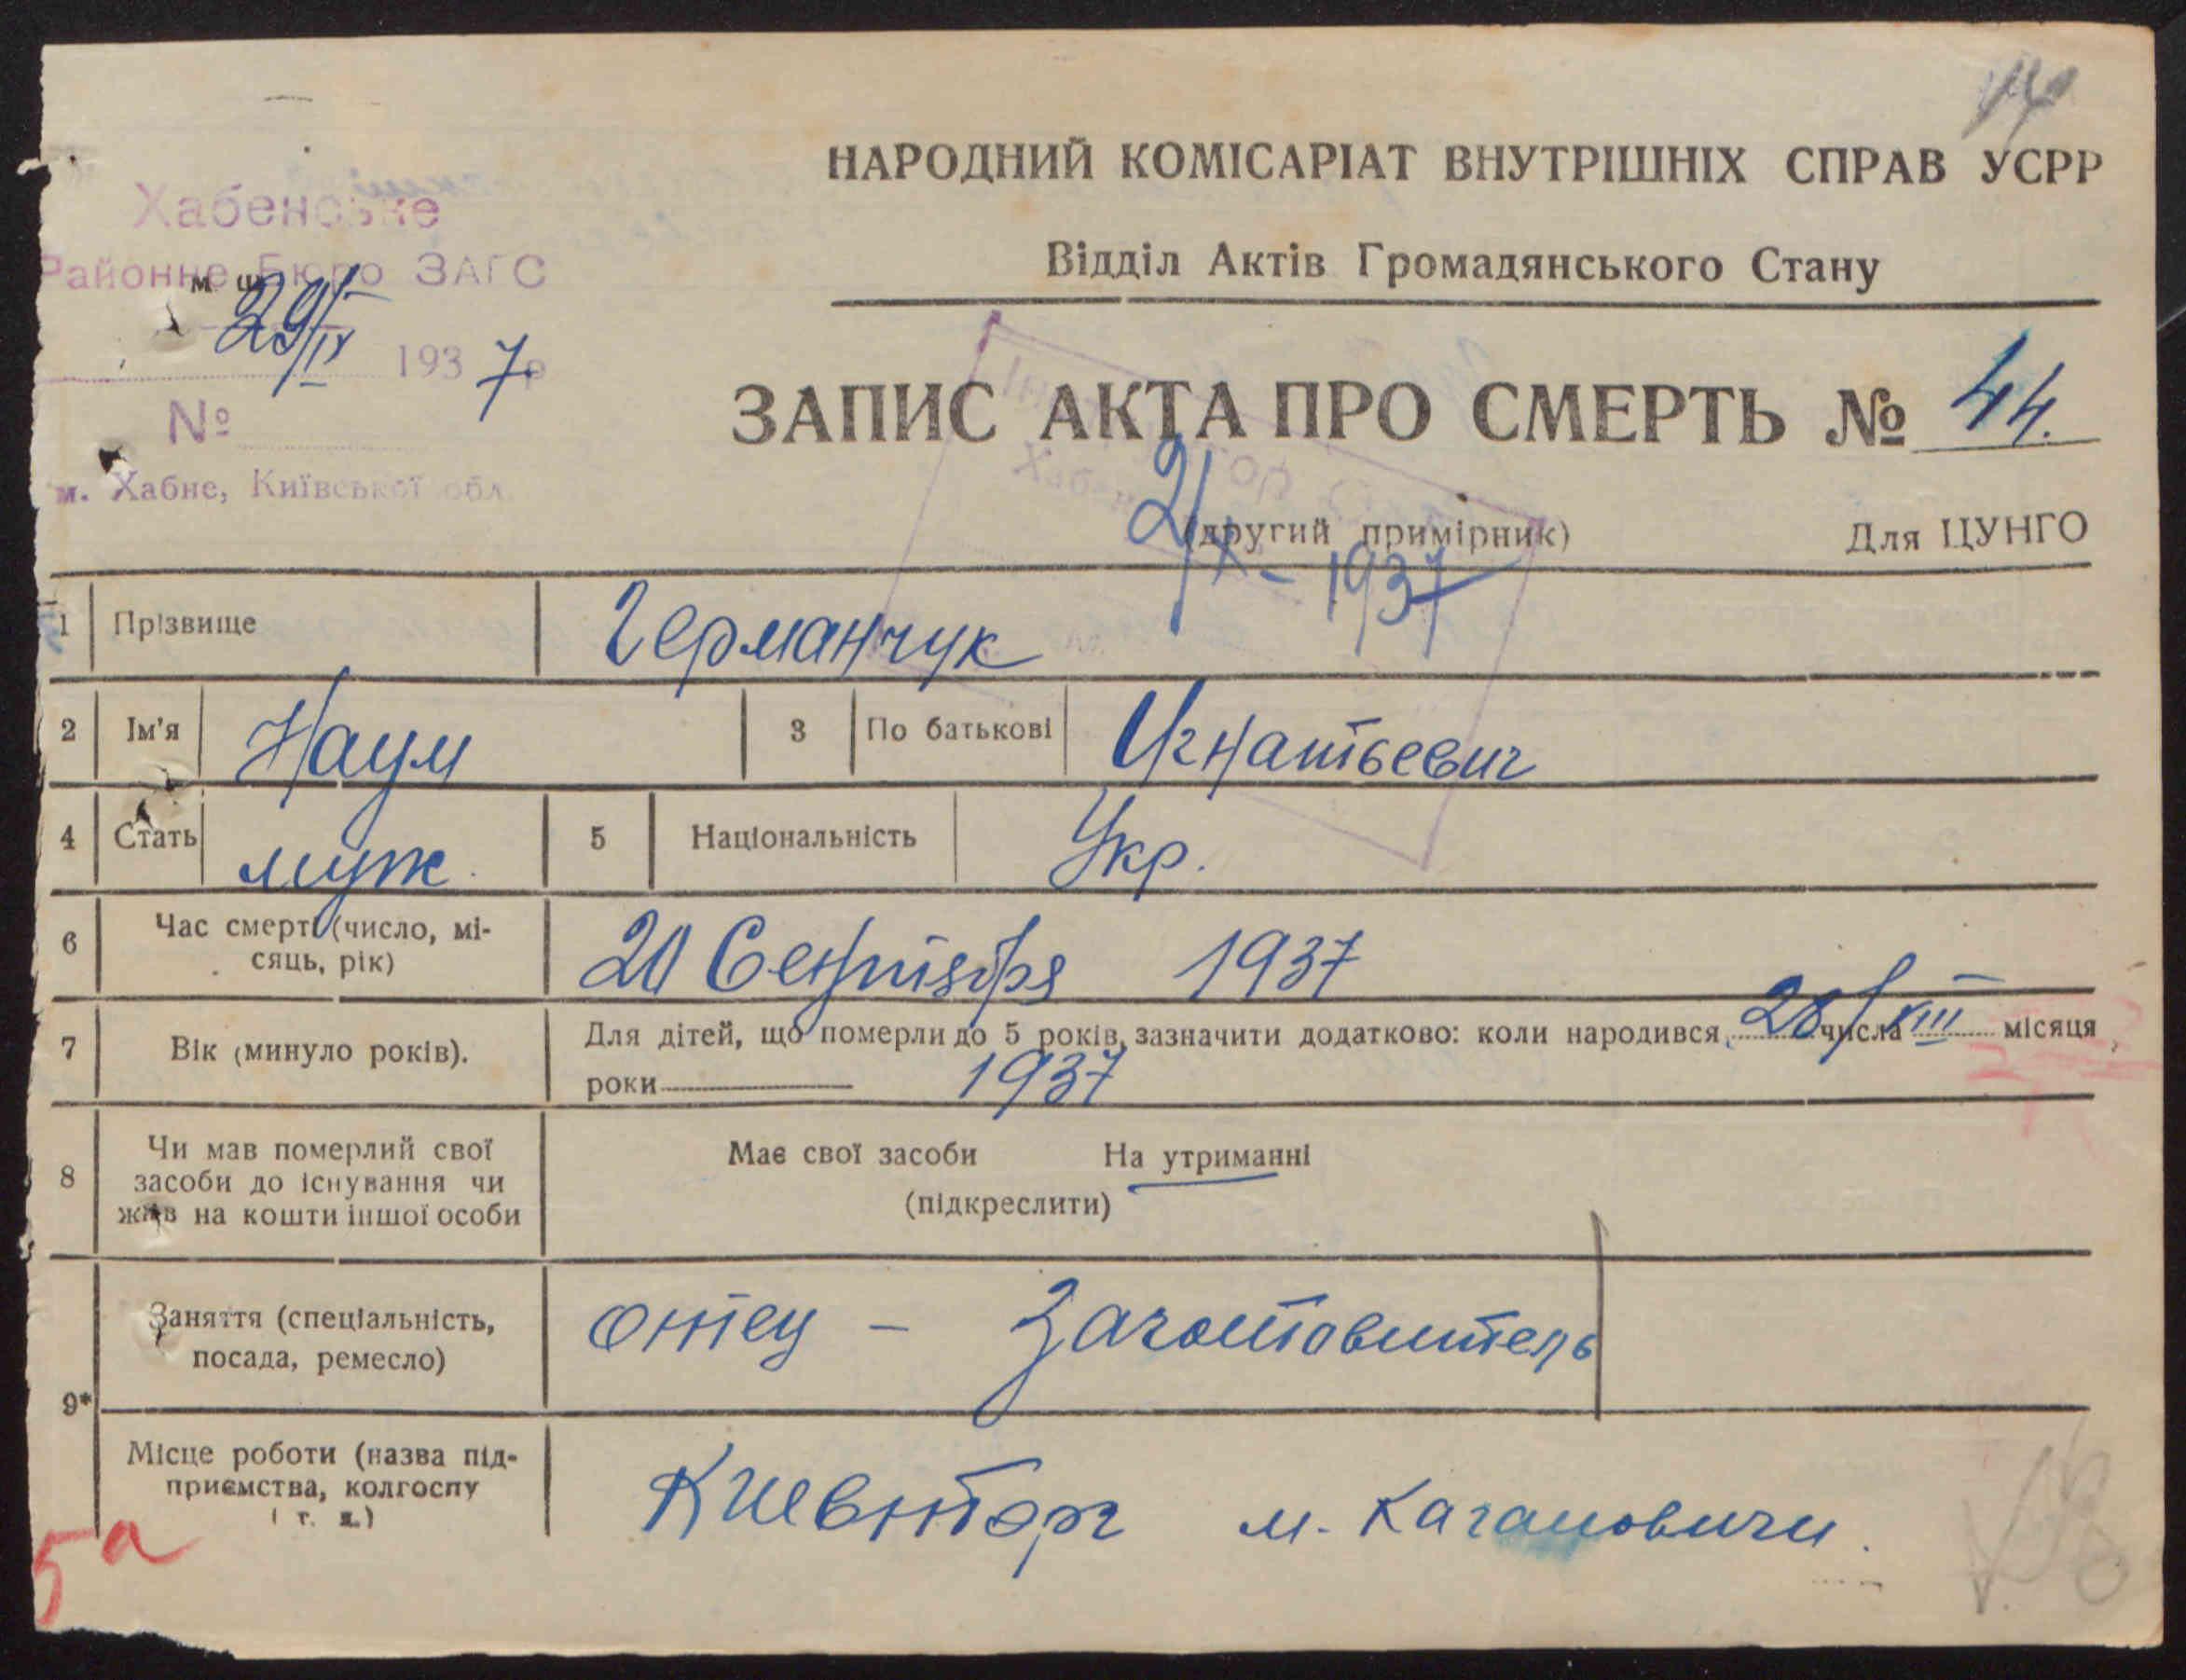 Хабенське
Районне Бюро ЗАГС
29/IX 1937р
№
м. Хабне, Київської обл.
НАРОДНИЙ КОМІСАРІАТ ВНУТРІШНІХ СПРАВ УСРР
Відділ Актів Громадянського Стану
ЗАПИС АКТА ПРО СМЕРТЬ № 44.
(другий примірник)
Для ЦУНГО
2/X - 1937
1 Прізвище Германчук
2 Ім'я Наум 3 По батькові Игнатьевич
4 Стать муж. 5 Національність Укр.
6 Час смерті (число, мі-
сяць, рік) 20 Сентября 1937
7 Вік (минуло років). Для дітей, що померли до 5 років, зазначити додатково: коли народився 28/ числа VIII місяця
роки 1937
8 Чи мав померлий свої
засоби до існування чи
жив на кошти іншої особи
Має свої засоби На утриманні
(підкреслити)
9* Заняття (спеціальність,
посада, ремесло) отец - Заготовитель
Місце роботи (назва під-
приємства, колгоспу
і т. д.) Киевторг м. Кагановичи.
5а